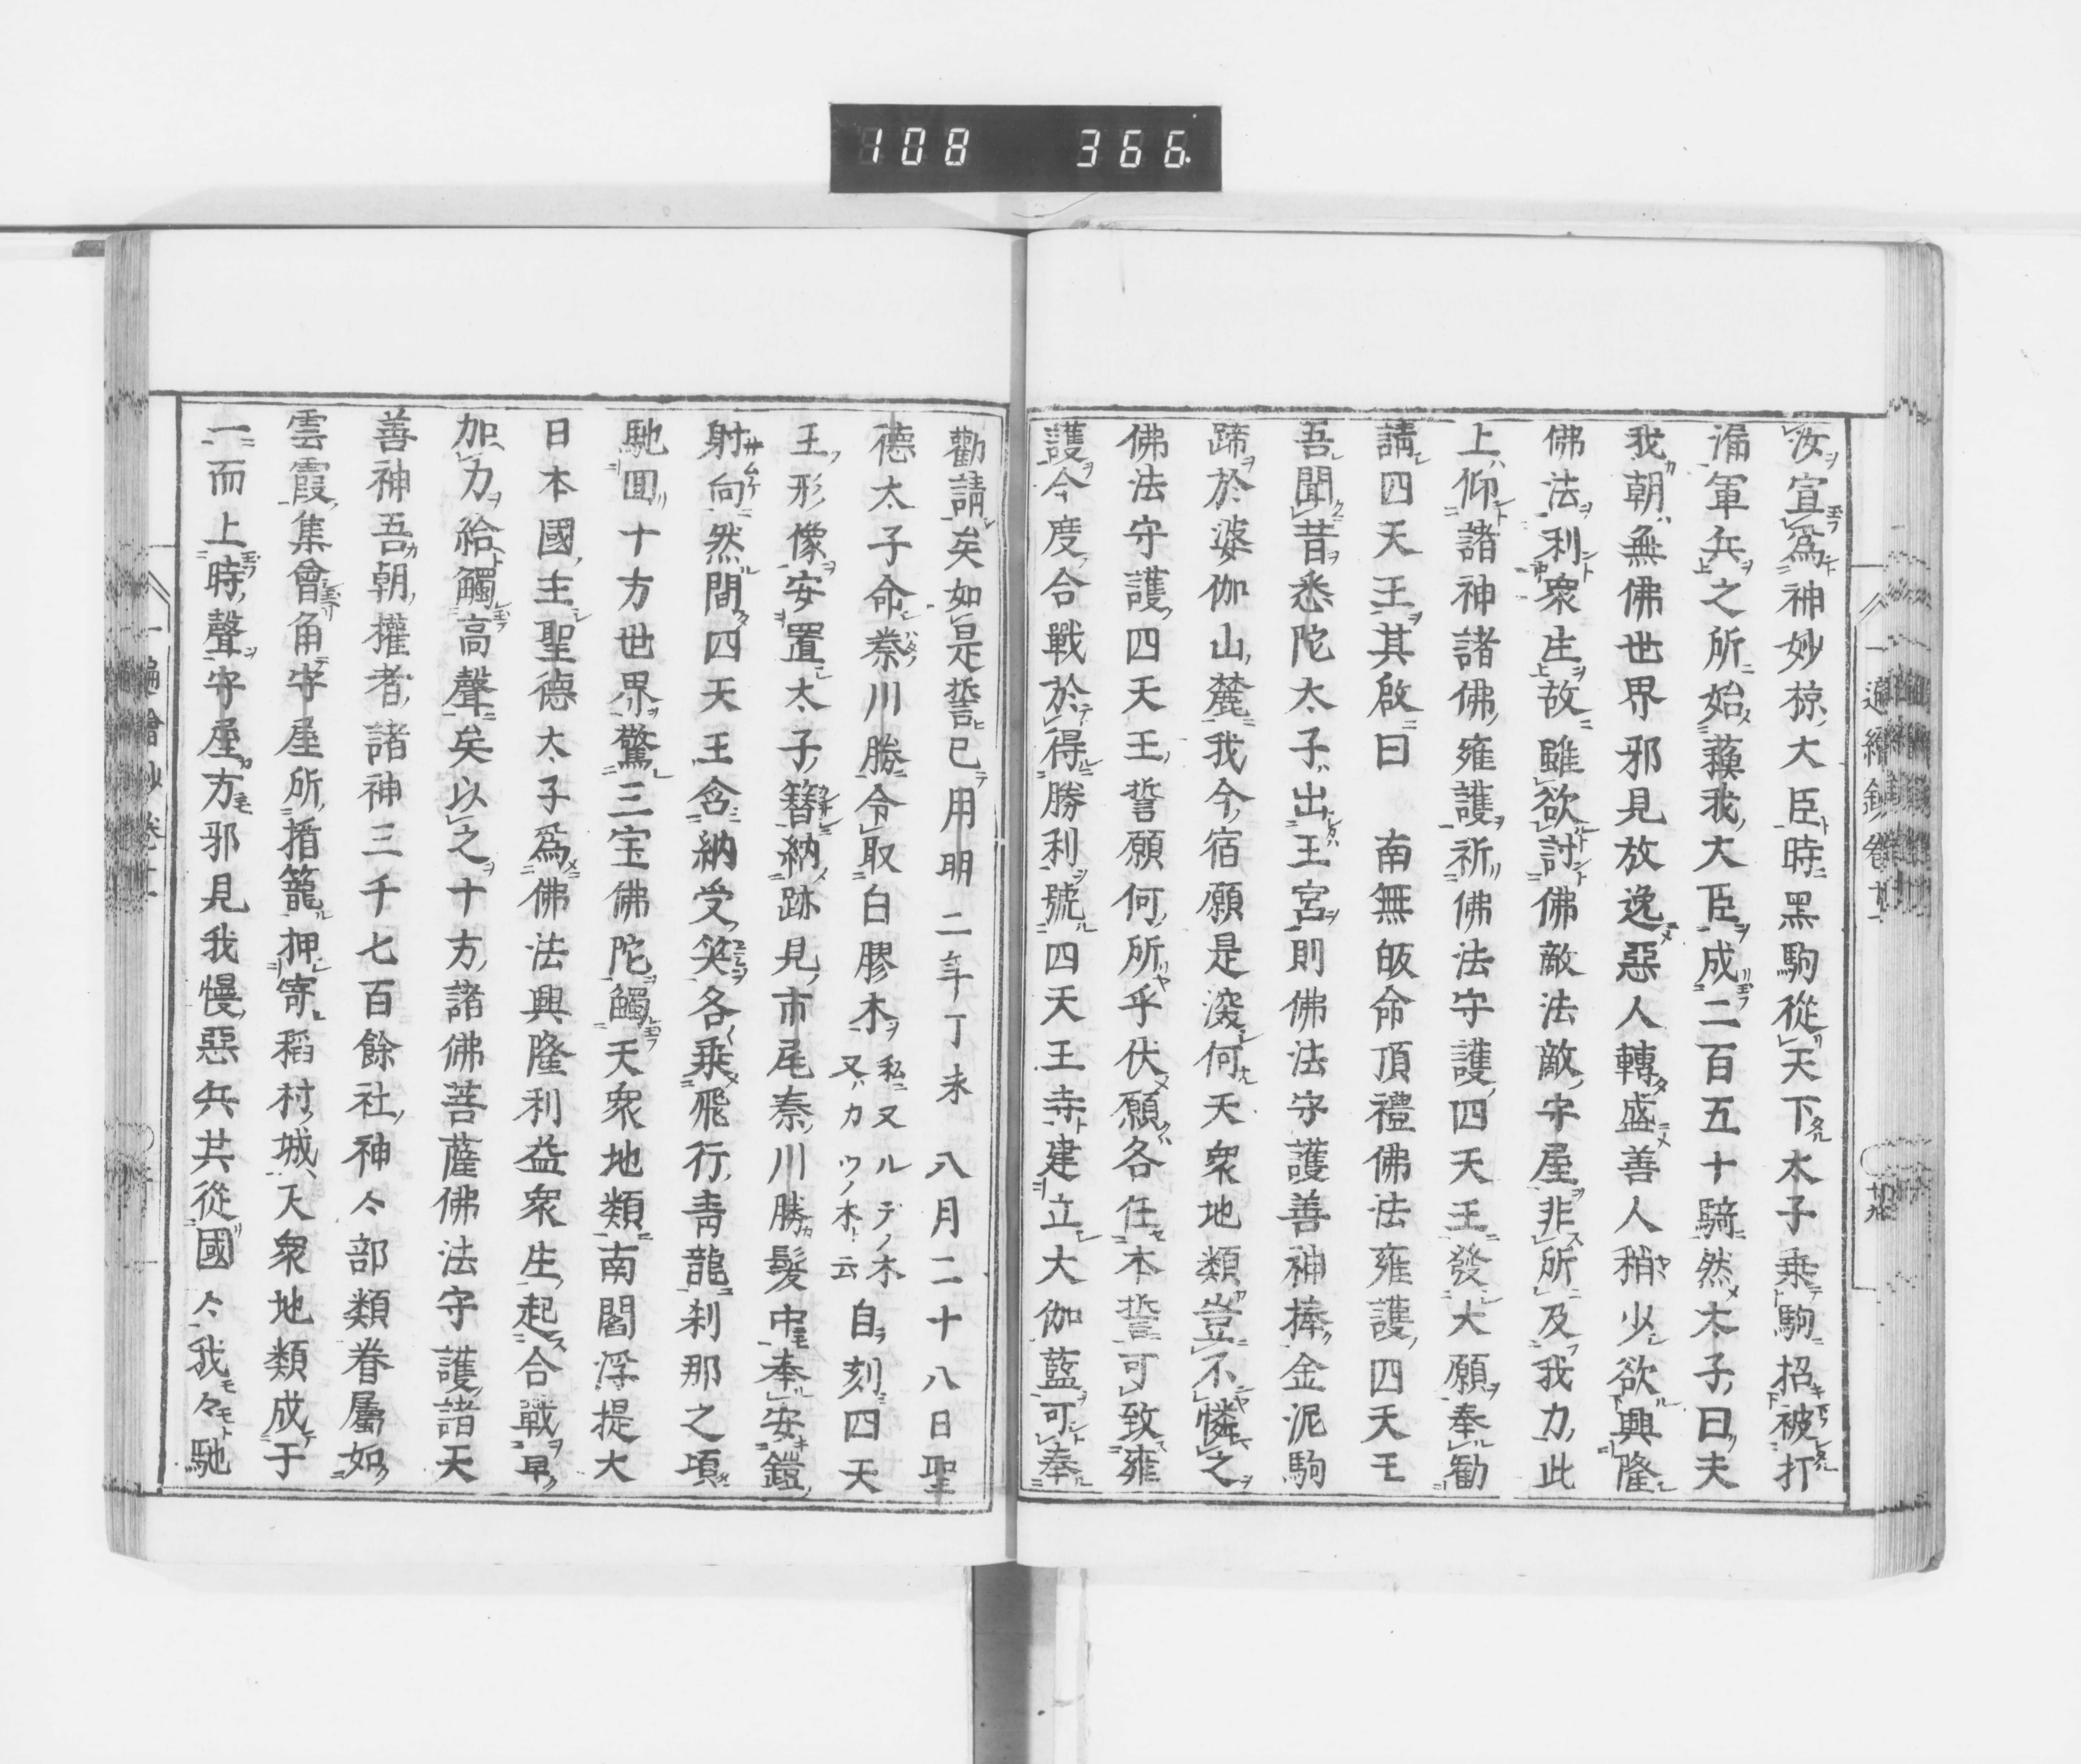 108 366
汝宣爲神妙椋大臣時黑駒從天下太子乗駒招被打
漏軍兵之所始蘓我大臣成二百五十騎然太子曰夫
我朝無佛世界邪見放逸惡人轉盛善人稍少欲興隆
佛法利衆生故雖欲討佛敵法敵守屋非所及我力此
上仰諸神諸佛雍護祈佛法守護四天王發大願奉勸
請四天王其啟曰 南無皈命頂禮佛法雍護四天王
吾聞昔悉陀太子出王宮則佛法守護善神捧金泥駒
蹄於婆伽山麓我今宿願是深何天衆地類豈不憐之
佛法守護四天王誓願何所乎伏願各任本誓可致雍
護今度合戰於得勝利號四天王寺建立大伽藍可奉
勸請矣如是誓已用明二年丁未 八月二十八日聖
德太子命秦川勝令取白膠木私ニ又ルデノ木又ハカウノ木ト云自刻四天
王形像安置太子簪納跡見市尾秦川勝髮中奉安鎧
射向然間四天王含納受笑各乗飛行青龍刹那之頃
馳囬十方世界驚三宝佛陀觸天衆地類南閻浮提大
日本國主聖德太子爲佛法興隆利益衆生起合戰早
加力給觸高聲矣以之十方諸佛菩薩佛法守護諸天
善神吾朝權者諸神三千七百餘社神々部類眷屬如
雲霞集會角守屋所揗籠押寄稻村城天衆地類成于
一而上時聲守屋方邪見我慢惡兵共從國々我々馳